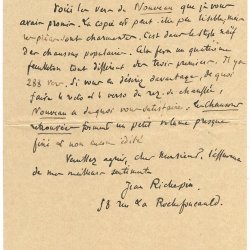 Voici les vers de Nouveau que je vous
avais promis. La copie est peut-être peu lisible, mais
les pièces sont charmantes. C'est dans le style naïf
des chansons populaires. Cela fera un quatrième
feuilleton tout différent des trois premiers. Il y a
288 vers. Si vous en désirez davantage, de quoi
faire le recto et le verso du rez-de-chaussée,
Nouveau a de quoi vous satisfaire. Les chansons
retrouvées forment un petit volume presque
fini et non encore édité
Veuillez agréer, cher Monsieur, l'assurance
de mes meilleurs sentiments
Jean Richepin
58 rue La Rochefoucauld.